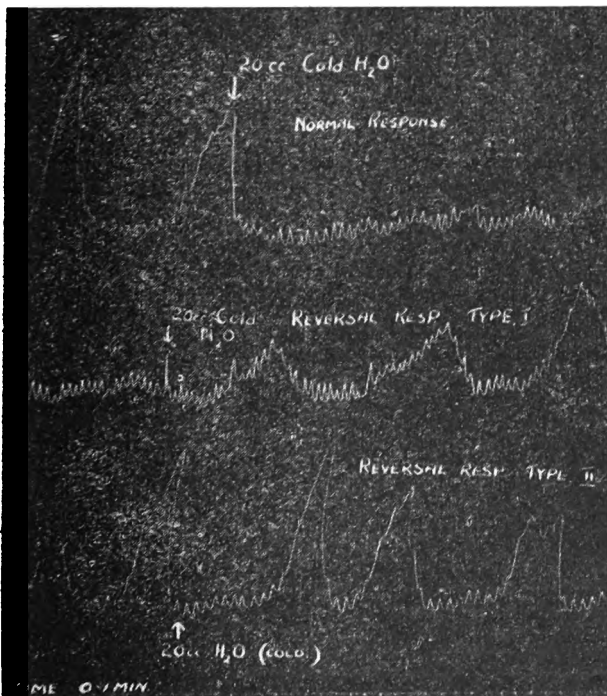 20 cc Cold H₂O
NORMAL RESPONSE
20cc Cold
H₂O
REVERSAL RESP TYPE I
REVERSAL RESP TYPE II
20cc H₂O (COLD.)
ME 0·1 MIN.